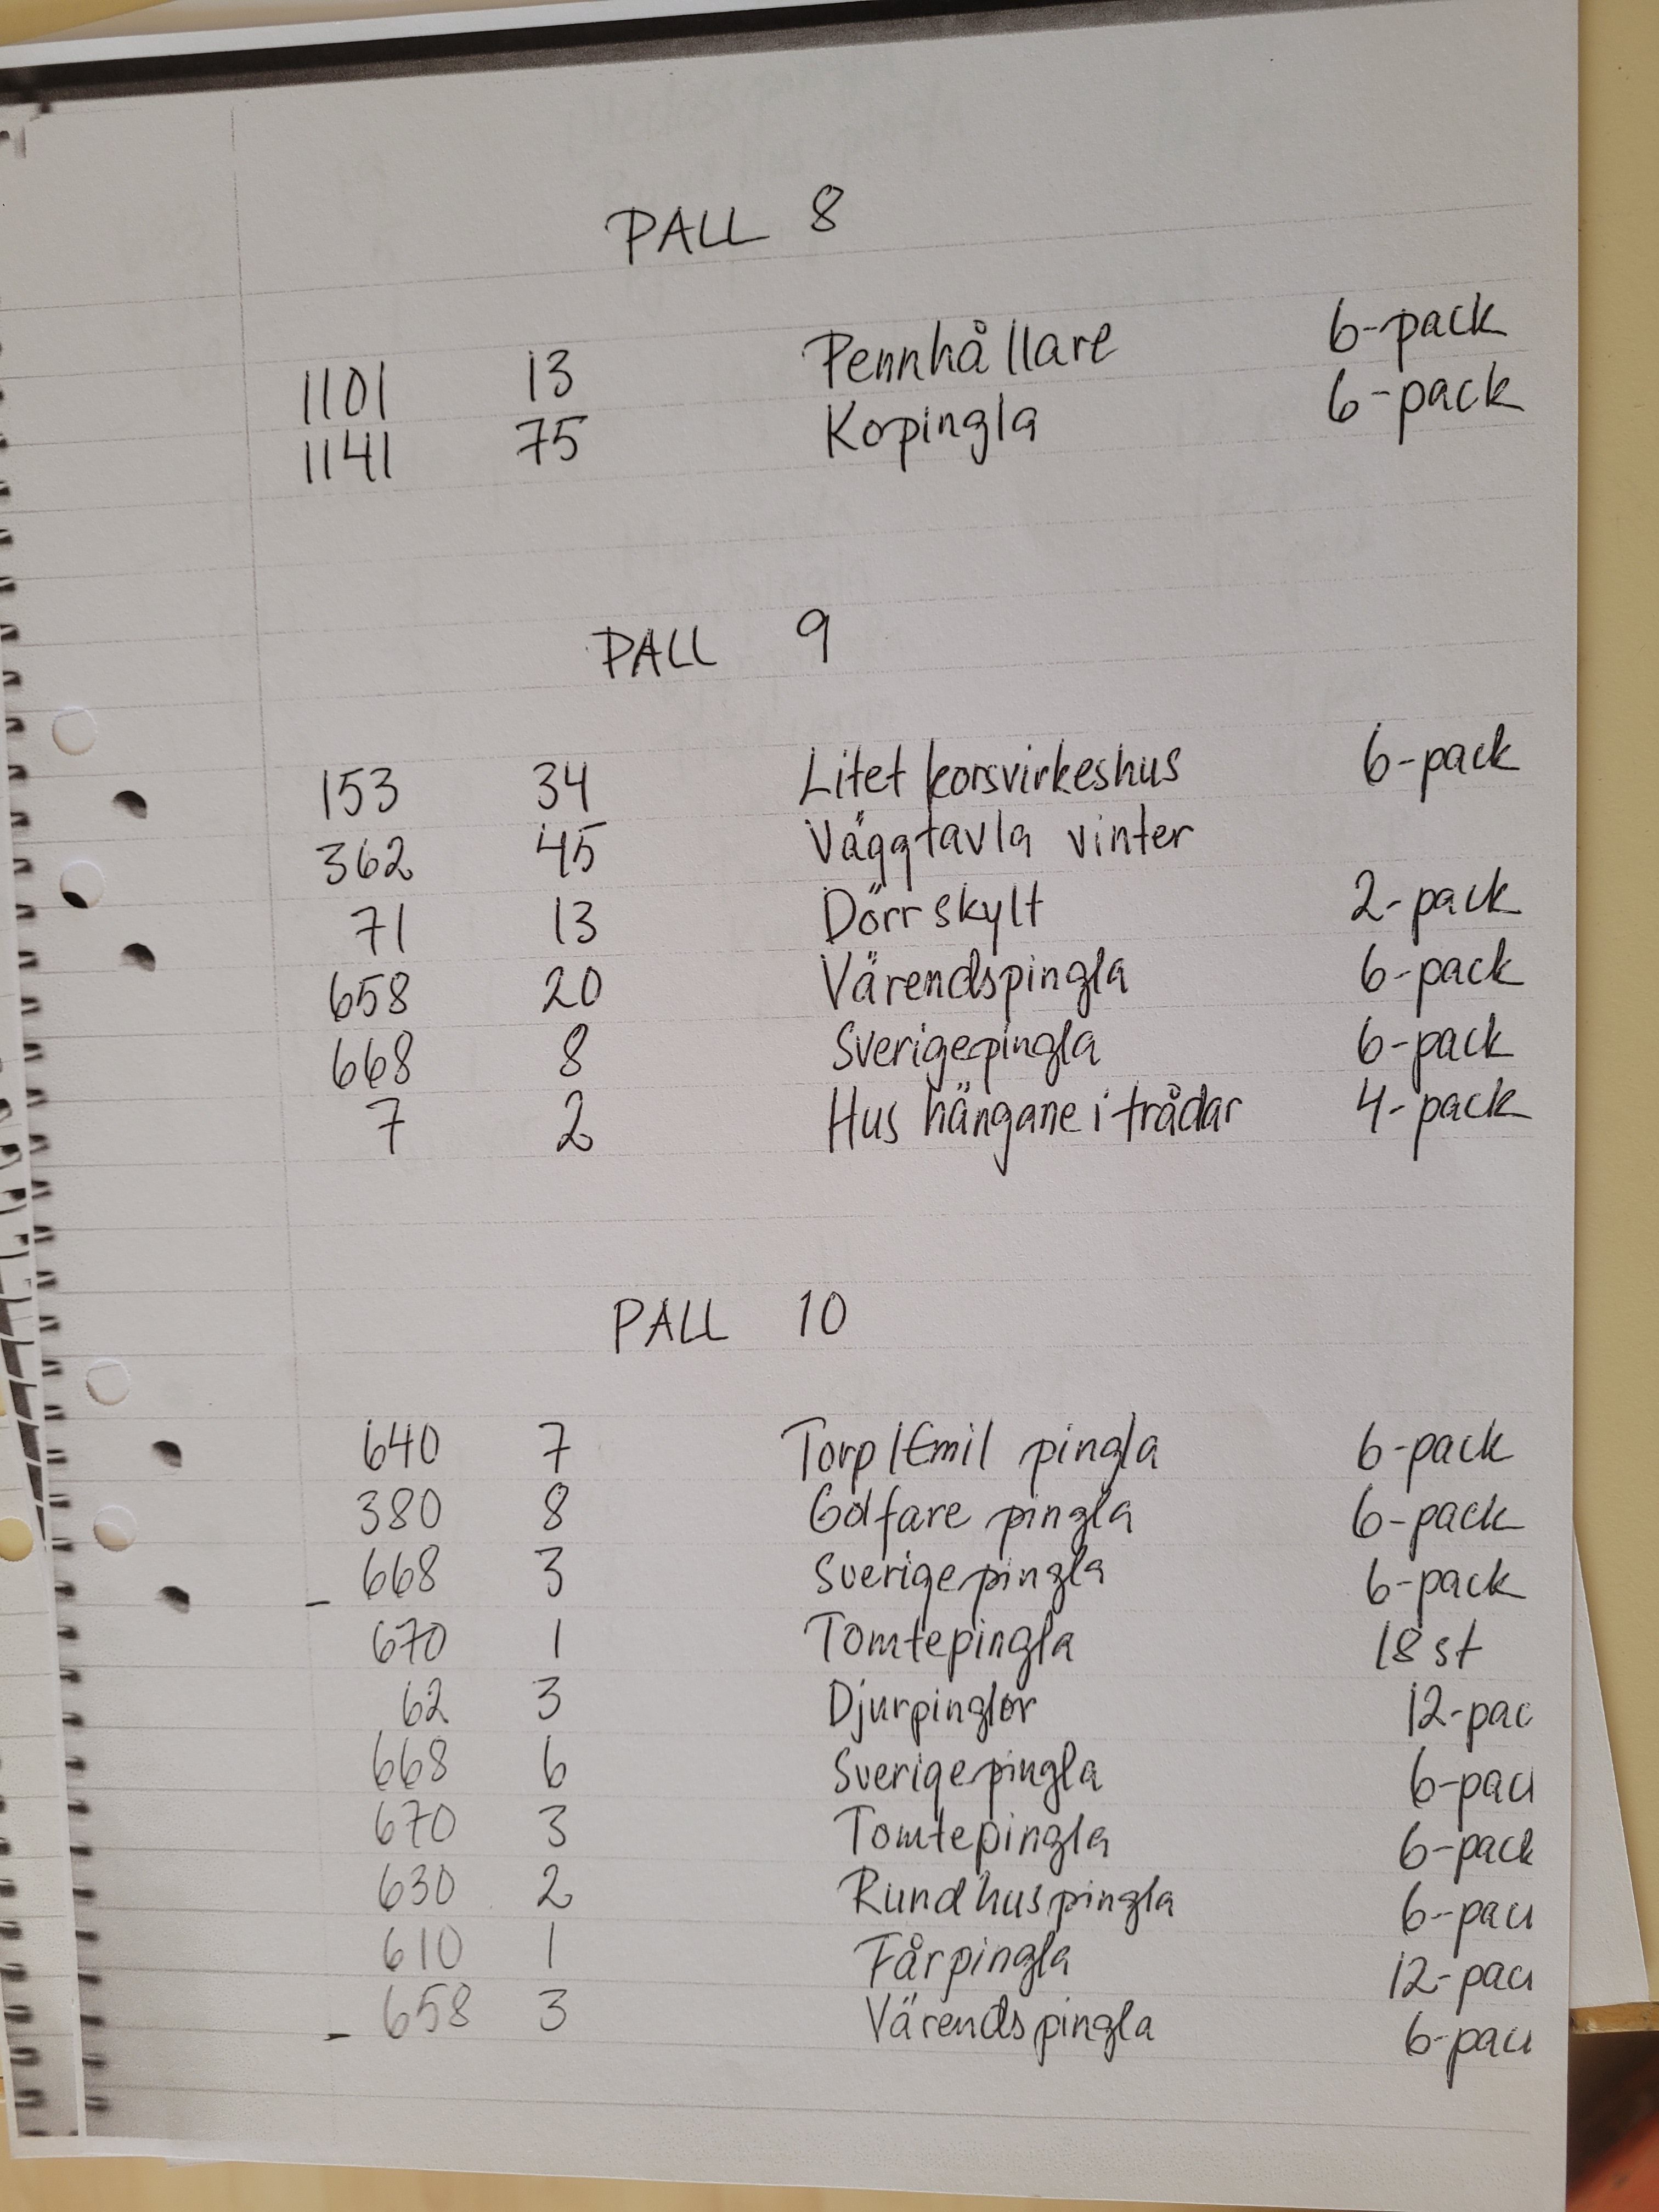 PALL 8
1101 13 Pennhållare 6-pack
1141 75 Kopingla 6-pack
PALL 9
153 34 Litet korsvirkeshus 6-pack
362 45 Väggtavla vinter
71 13 Dörrskylt 2-pack
658 20 Värendspingla 6-pack
668 8 Sverigepingla 6-pack
7 2 Hus hängane i trådar 4-pack
PALL 10
640 7 Torp/Emil pingla 6-pack
380 8 Golfare pingla 6-pack
- 668 3 Sverigepingla 6-pack
670 1 Tomtepingla 18 st
62 3 Djurpinglor 12-pac
668 6 Sverigepingla 6-pac
670 3 Tomtepingla 6-pack
630 2 Rundhuspingla 6-pac
610 1 Fårpingla 12-pac
- 658 3 Värendspingla 6-pac